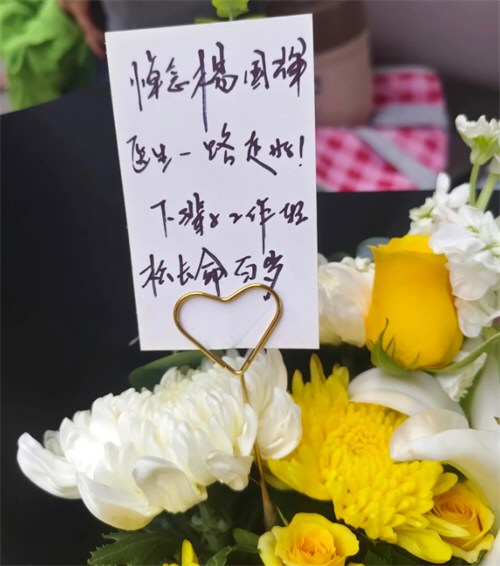 悼念楊国辉
医生一路走好!
下辈子工作轻
松长命百岁